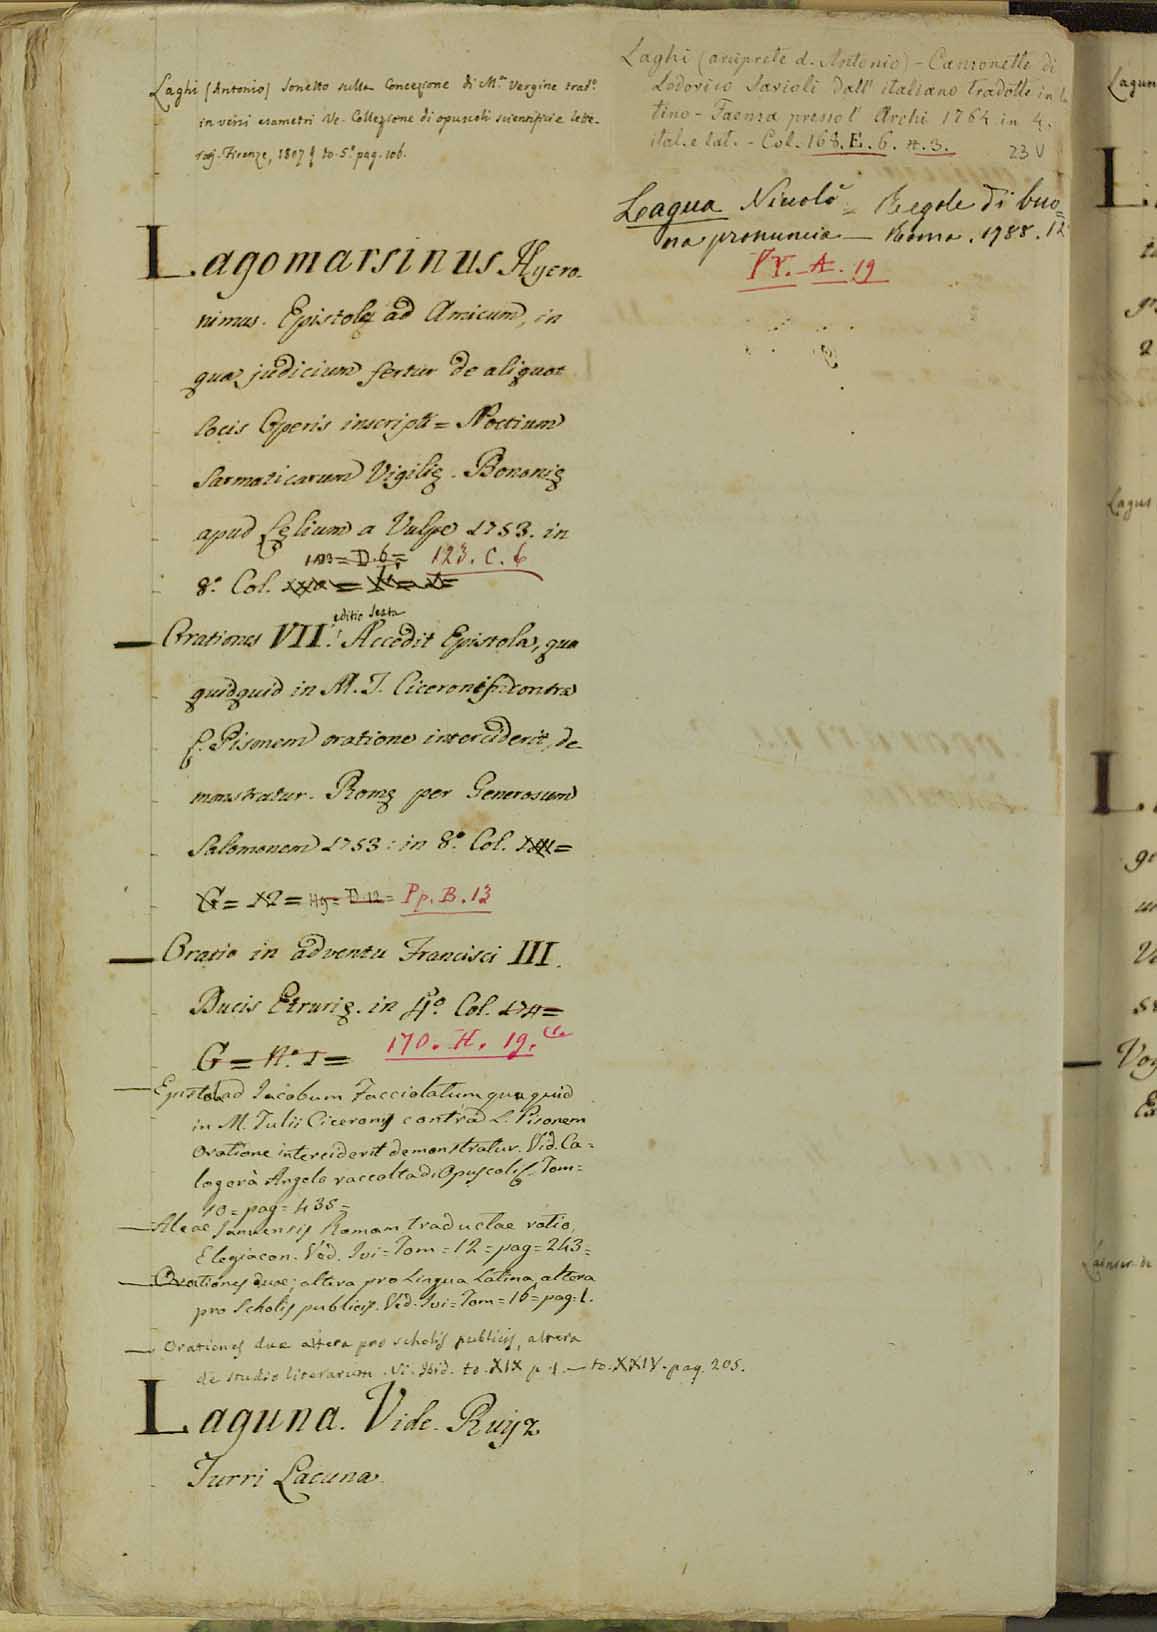 Laghi (Antonio) Sonetto sulla Concezione di M.ª Vergine trad.º
in versi esametri Ve. Collezione di opuscoli scientifici e lette-
rarj. Firenze, 1807 to. 5.º pag. 106.
Lagomarsinus Hyero-
nimus. Epistola ad Amicum, in
qua judicium fertur de aliquot
locis Operis inscripti = Noctium
Sarmaticarum Vigilię. Bononię
apud Lęlium a Vulpe 1753. in
123 = D. 6 = 123. C. 6
8.º Col.
editio sexta
— Orationes VII. Accedit Epistola, qua
quidquid in M. T. Ciceronis contra
L. Pisonem oratione interciderit, de-
monstratur. Romę per Generosum
Salomonem 1753: in 8.º Col.
G = 12 = Hg = D. 12 = Pp. B. 13
— Oratio in adventu Francisci III.
Ducis Etrurię. in 4.º Col. 174 =
G = N.º 1 = 170. H. 19.
— Epistola ad Jacobum Facciolatum qua quid
in M. Tulii Ciceronis contra L. Pisonem
Oratione interciderit demonstratur. Vid. Ca-
logerà Angelo raccolta di Opuscoli. Tom =
40 = pag = 435 =
— Aleae Januensis Romam traductae ratio,
Elegiacon. Ved. Ivi = Tom = 12 = pag = 243 =
— Orationes duae; altera pro Lingua Latina, altera
pro Scholis publicis. Ved. Ivi = Tom = 16 = pag = 1.
— Orationes duæ altera pro scholis publicis, altera
de studio literarum. Vi. Ibid. to. XIX p. 1. — to. XXIV. pag. 205.
Laguna. Vide. Ruijz
Turri Lacuna.
Laghi (arciprete d. Antonio) - Canzonette di
Lodovico Savioli dall' italiano tradotte in la
tino - Faenza presso l' Archi 1764 in 4.
ital. e lat. - Col. 168. E. 6. 23 V
Laqua Nicolò = Regole di buo=
na pronuncia — Roma. 1788. 12
A. 19